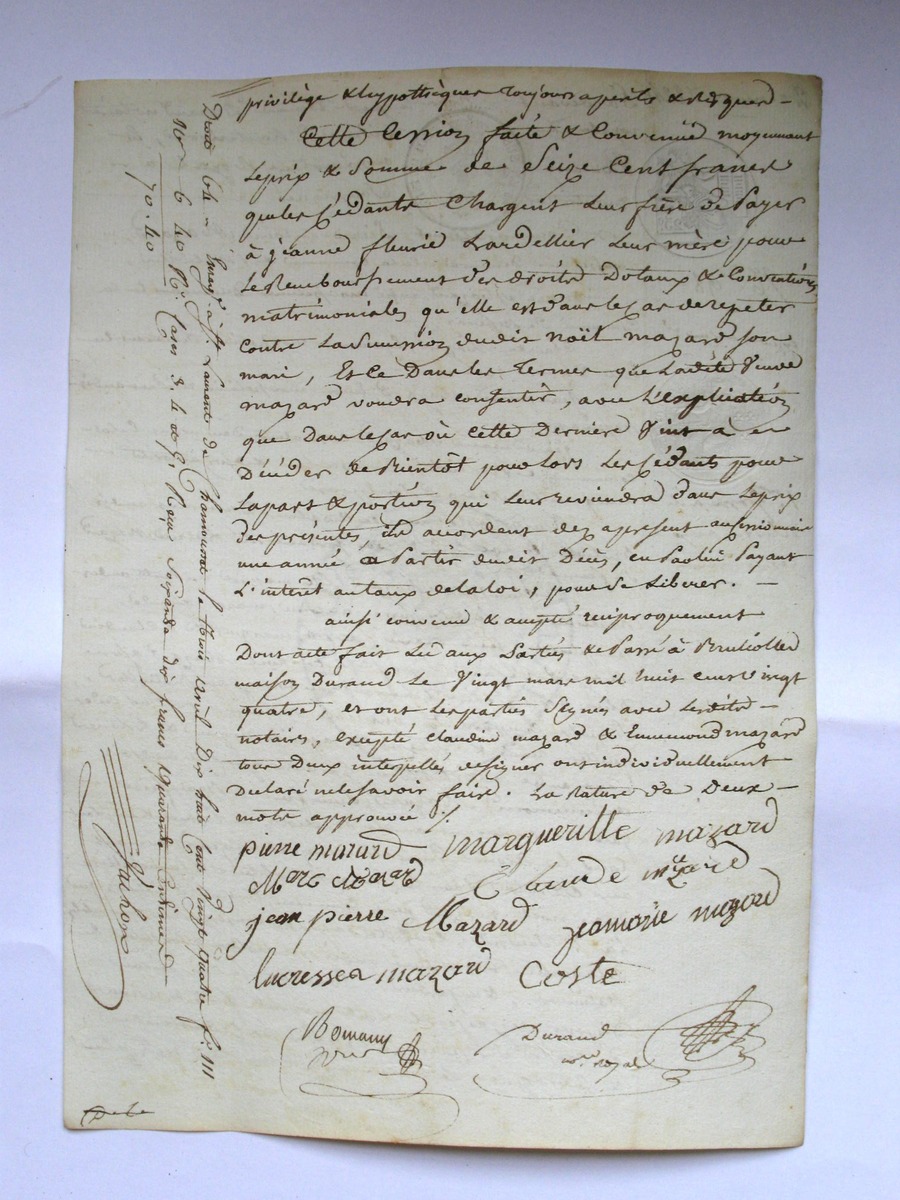 privilège & hypothèques toujours a perils & risques —
Cette Cession faite & Convenue moyennant
Le prix & Somme de Seize Cent francs
que les Cédants Chargent Leur frère de Payer
à jeanne fleurie Lardellier Leur mère pour
Le Remboursement des droits Dotaux & Conventions
matrimoniales qu'elle est dans le cas de repeter
contre La Succession dudit noël mazard son
mari, Et Ce Dans les termes que Ladite Veuve
mazard voudra consentir, avec L'explication
que Dans le Cas où Cette Dernière Vint à en
Décider de Bientôt pour Lors Les Cédants pour
La part & portion qui Leur reviendra dans Le prix
des présentes, ils accordent dez apresent au Cessionnaire
une année à Partir dudit Décès, en Payant
L'intérêt au taux de la loi, pour Se Liberer. —
ainsi convenu & accepté reciproquement
Dont acte fait Lu aux Parties & Passé à Brullioles
maison Durand Le Vingt mars mil huit cent vingt
quatre, et ont Les parties Signés avec Lesdits —
notaires, excepté claudine mazard & Ennemond mazard
tous Deux interpellés de signer ont individuellement
Declaré ne le savoir faire. La Rature de Deux —
mots approuvée ./.
pierre mazard marguerite mazard
Marc Mazard Claude mazard
jean pierre Mazard jeamarie mazard
lucresse mazard Coste
Romany
Durand
n.re royal
Droits 64 " Enreg.é à St Laurent de Chamousset le trois avril Dix huit Cent Vingt quatre f.° 111
10.e 6 40 R.° Cases 3. 4 & 5. Reçu Soixante dix francs quarante Centimes
70.40